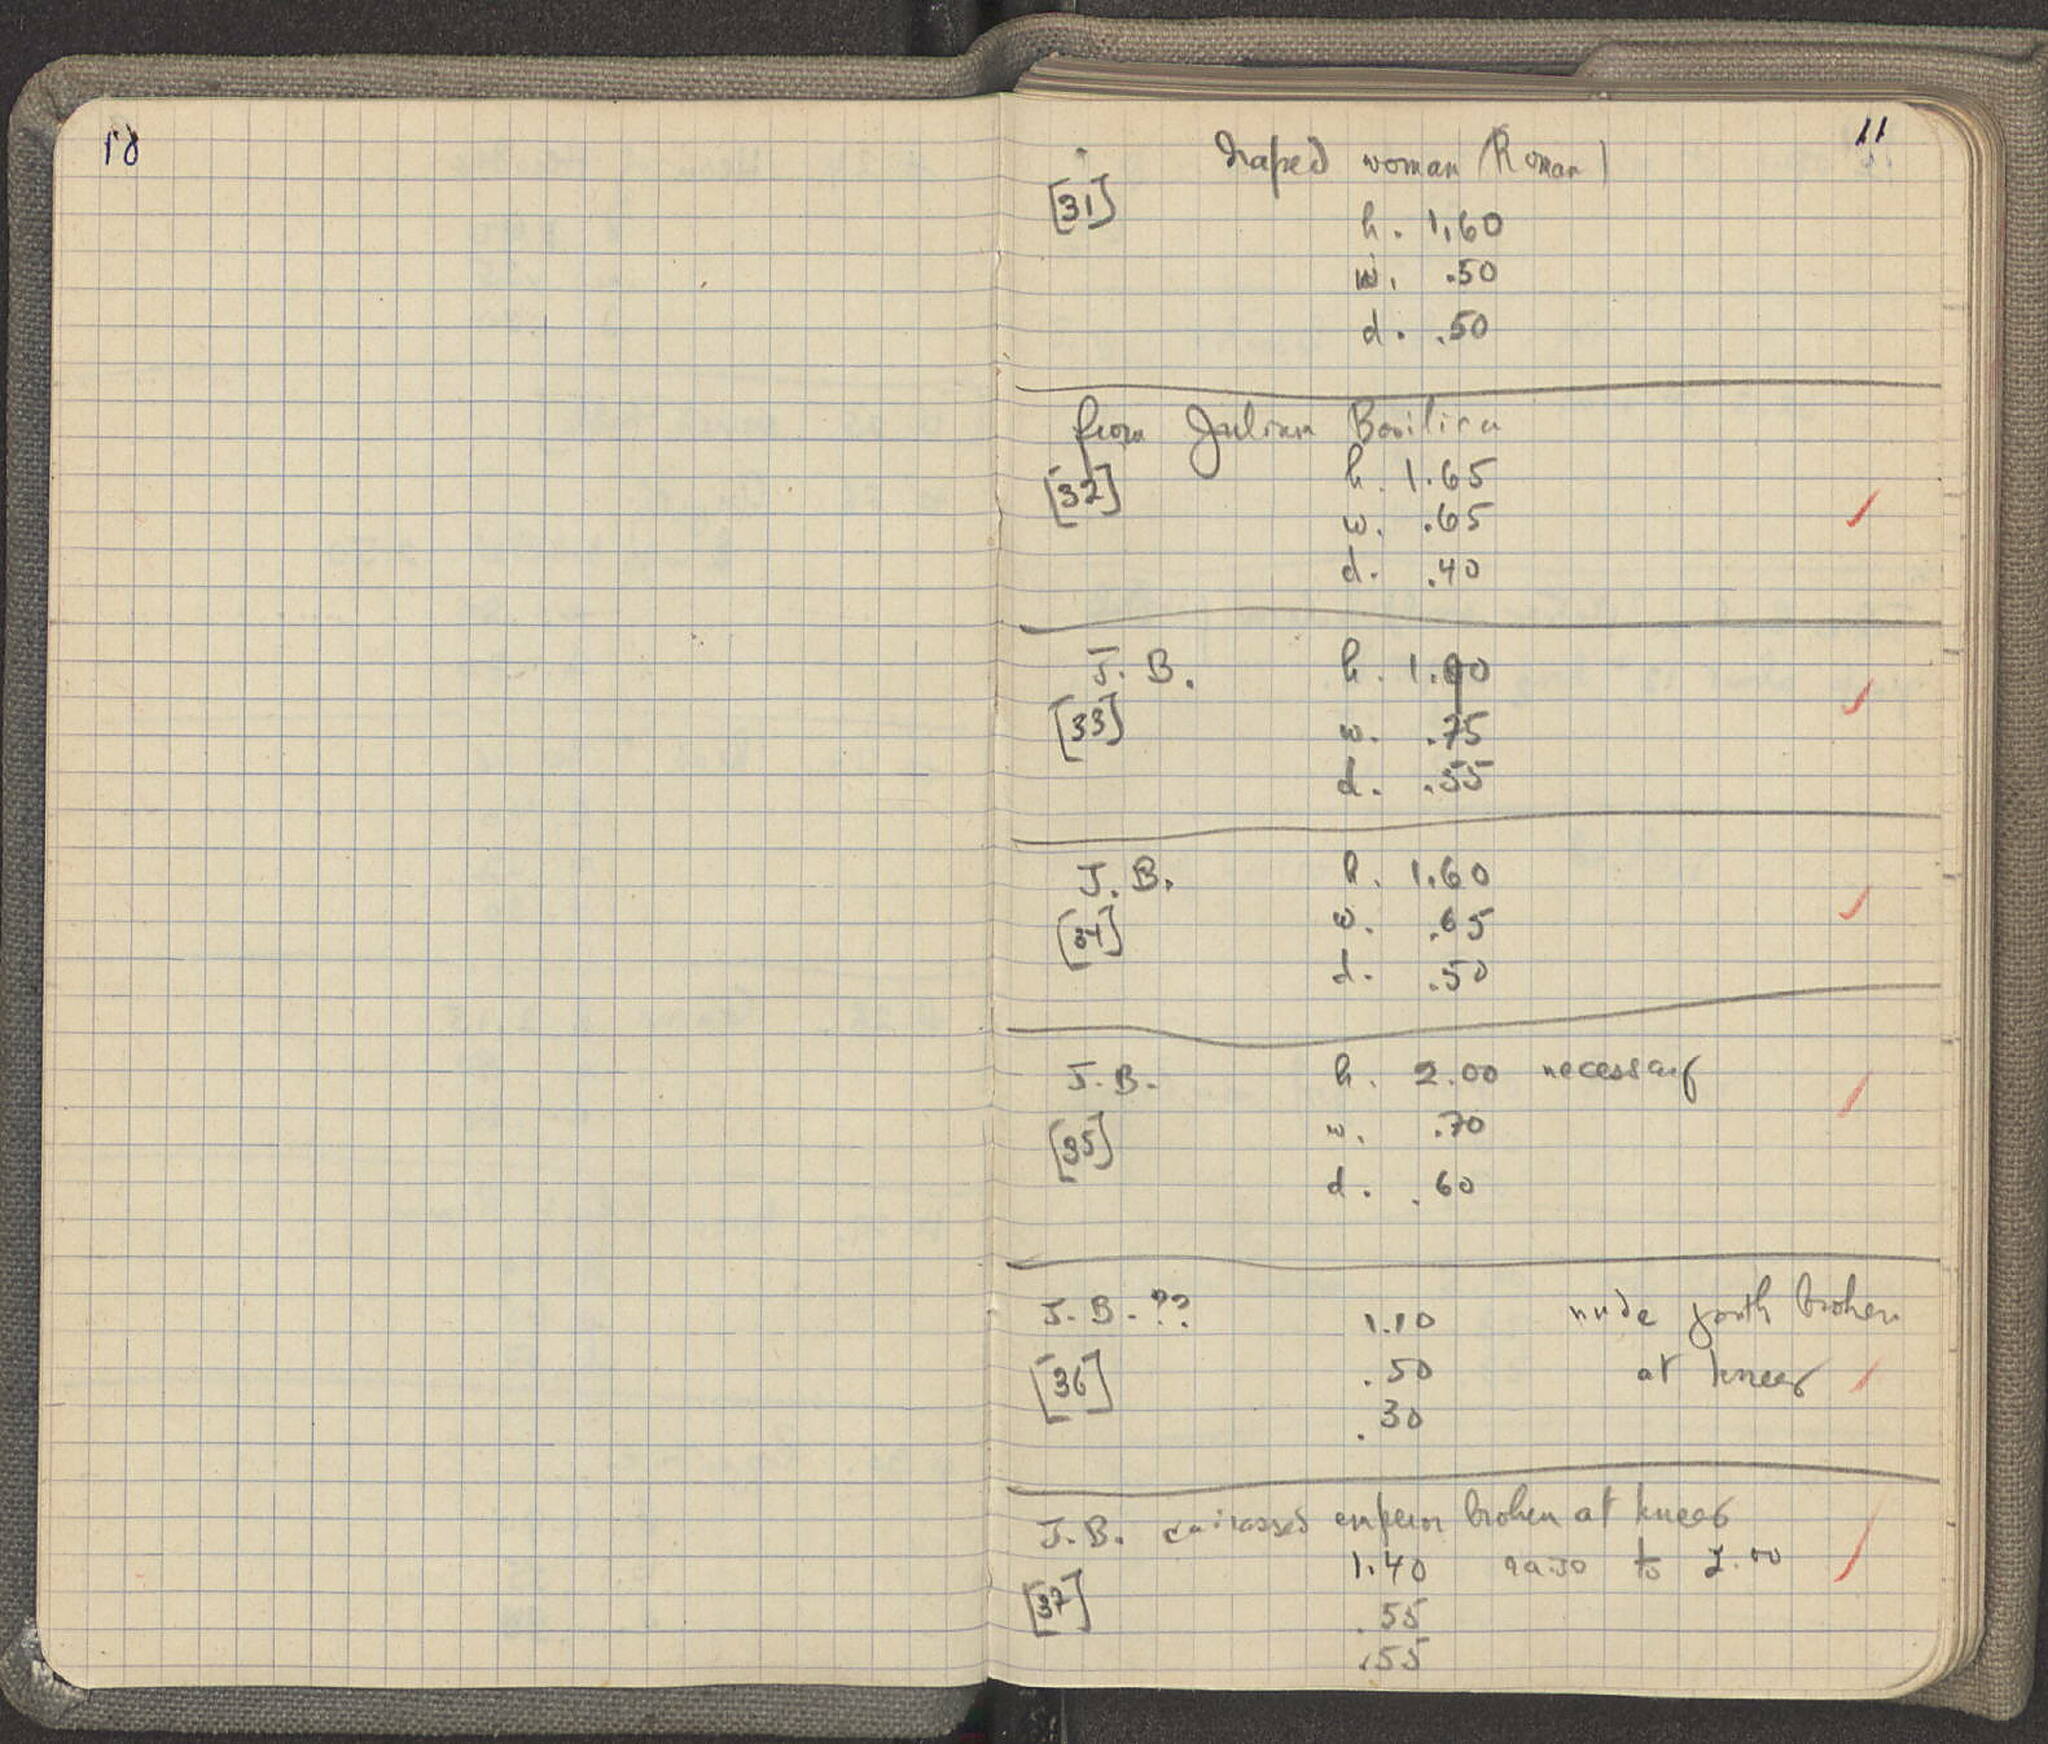 11
draped woman (Roman)
[31]
h. 1.60
w. .50
d. .50
from Julian Basilica
[32]
h. 1.65
w. .65
d. .40
J. B. h. 1.
[33]
w. .75
d. .55
J. B. h. 1.60
[34]
w. .65
d. .50
J. B. h. 2.00 necessary
[35]
w. .70
d. .60
J. B. ?? 1.10 nude youth broken
[36]
.50 at knees
.30
J. B. cuirassed emperor broken at knees
1.40 to 2.00
[37]
.55
.55